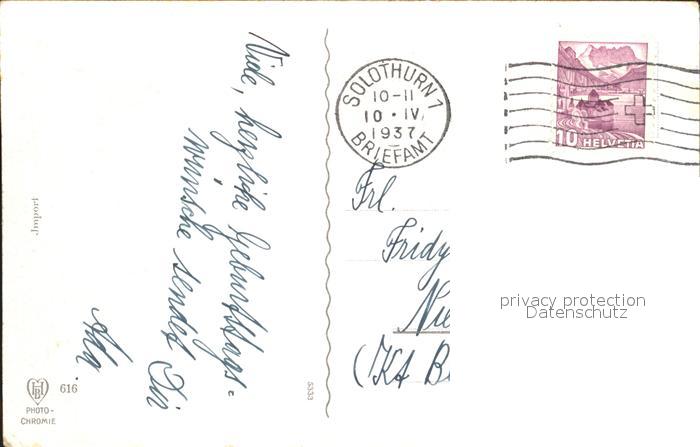 Viele, herzliche Geburtstags-
wünsche sendet Dir
Ada.
Import
616
PHOTO-
CHROMIE
5333
SOLOTHURN 1
10-11
10 · IV
1937
BRIEFAMT
10 HELVETIA
Frl.
Fridy
Nie
(Kt B
privacy protection
Datenschutz